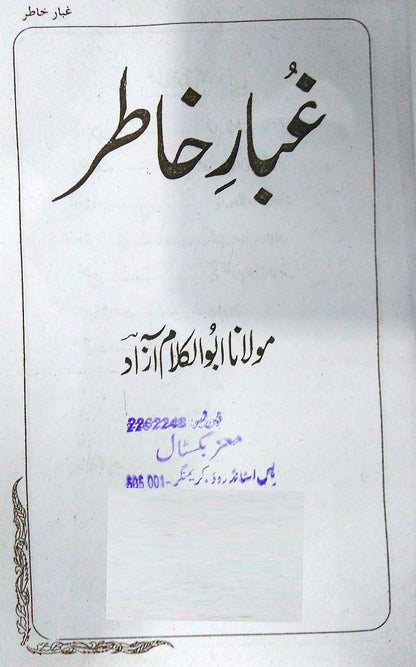 غبار خاطر
غُبارِ خاطر
مولانا ابُوالکلام آزادؔ
فون نمبر: 2262248
معز بکسٹال
بس اسٹانڈ روڈ، کریمنگر-505 001